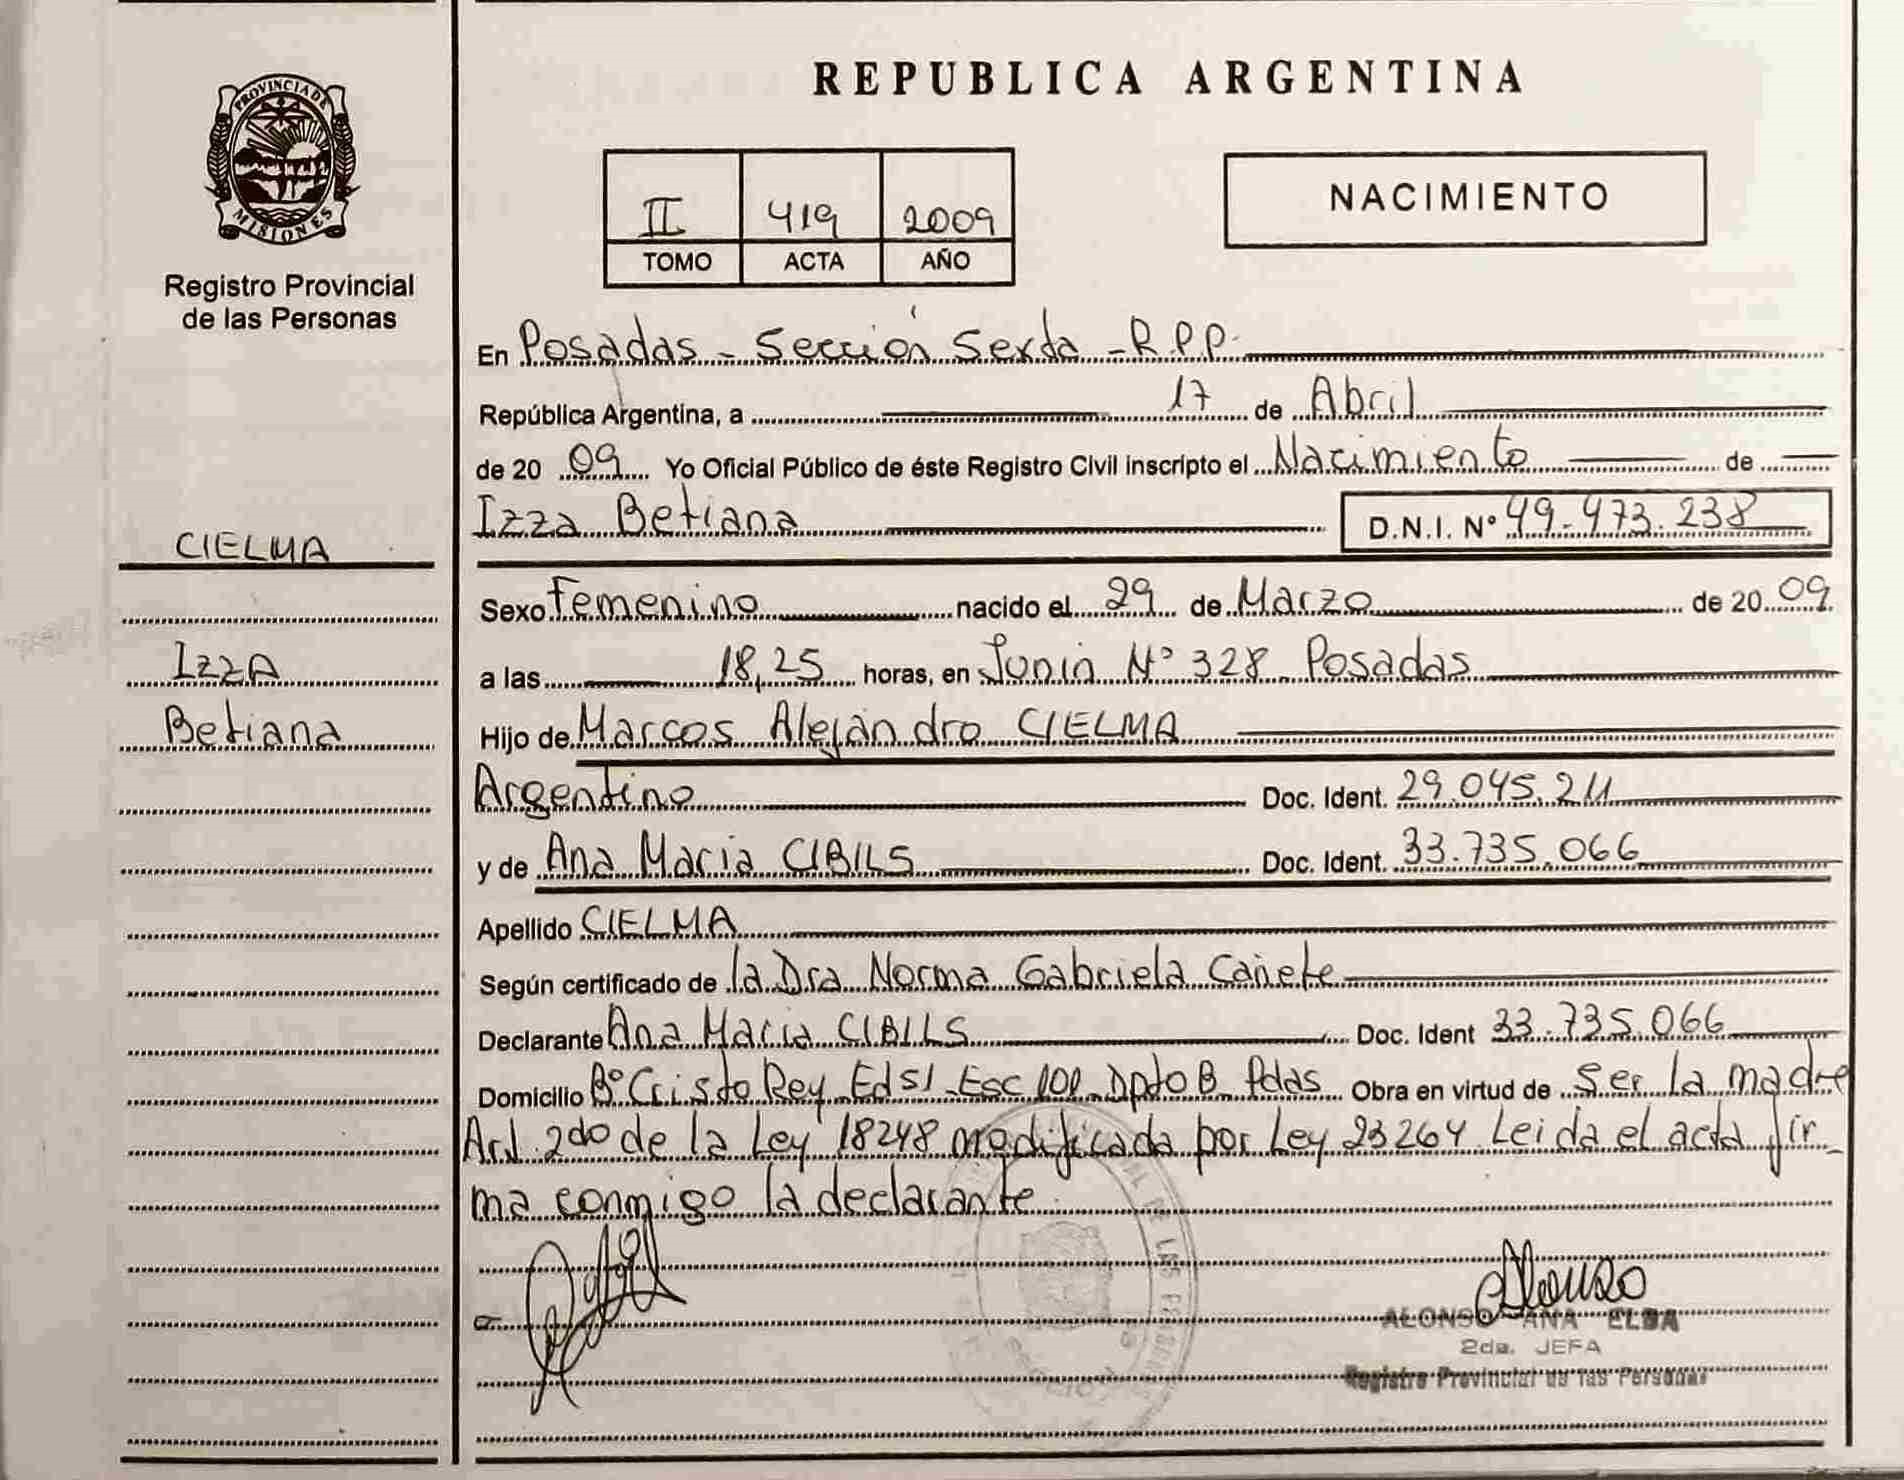 PROVINCIA DE
MISIONES
Registro Provincial
de las Personas
CIELMA
Izza
Betiana
REPUBLICA ARGENTINA
II 419 2009
TOMO ACTA AÑO
NACIMIENTO
En Posadas - Sección Sexta - R.P.P.
República Argentina, a 17 de Abril
de 2009 Yo Oficial Público de éste Registro Civil inscripto el Nacimiento de
Izza Betiana D.N.I. Nº 49.473.238
Sexo Femenino nacido el 29 de Marzo de 2009
a las 18,25 horas, en Junin Nº 328 Posadas
Hijo de Marcos Alejandro CIELMA
Argentino Doc. Ident. 29.045.211
y de Ana Maria CIBILS Doc. Ident. 33.735.066
Apellido CIELMA
Según certificado de la Dra Norma Gabriela Cañete
Declarante Ana Maria CIBILS Doc. Ident 33.735.066
Domicilio Bº Cristo Rey Ed 51 Esc 101 Dpto B Pdas Obra en virtud de Ser la madre
Art 2do de la Ley 18248 modificada por Ley 23264 Leida el acta fir_
ma conmigo la declarante.
Alonso
ALONSO ANA ELBA
2da. JEFA
Registro Provincial de las Personas